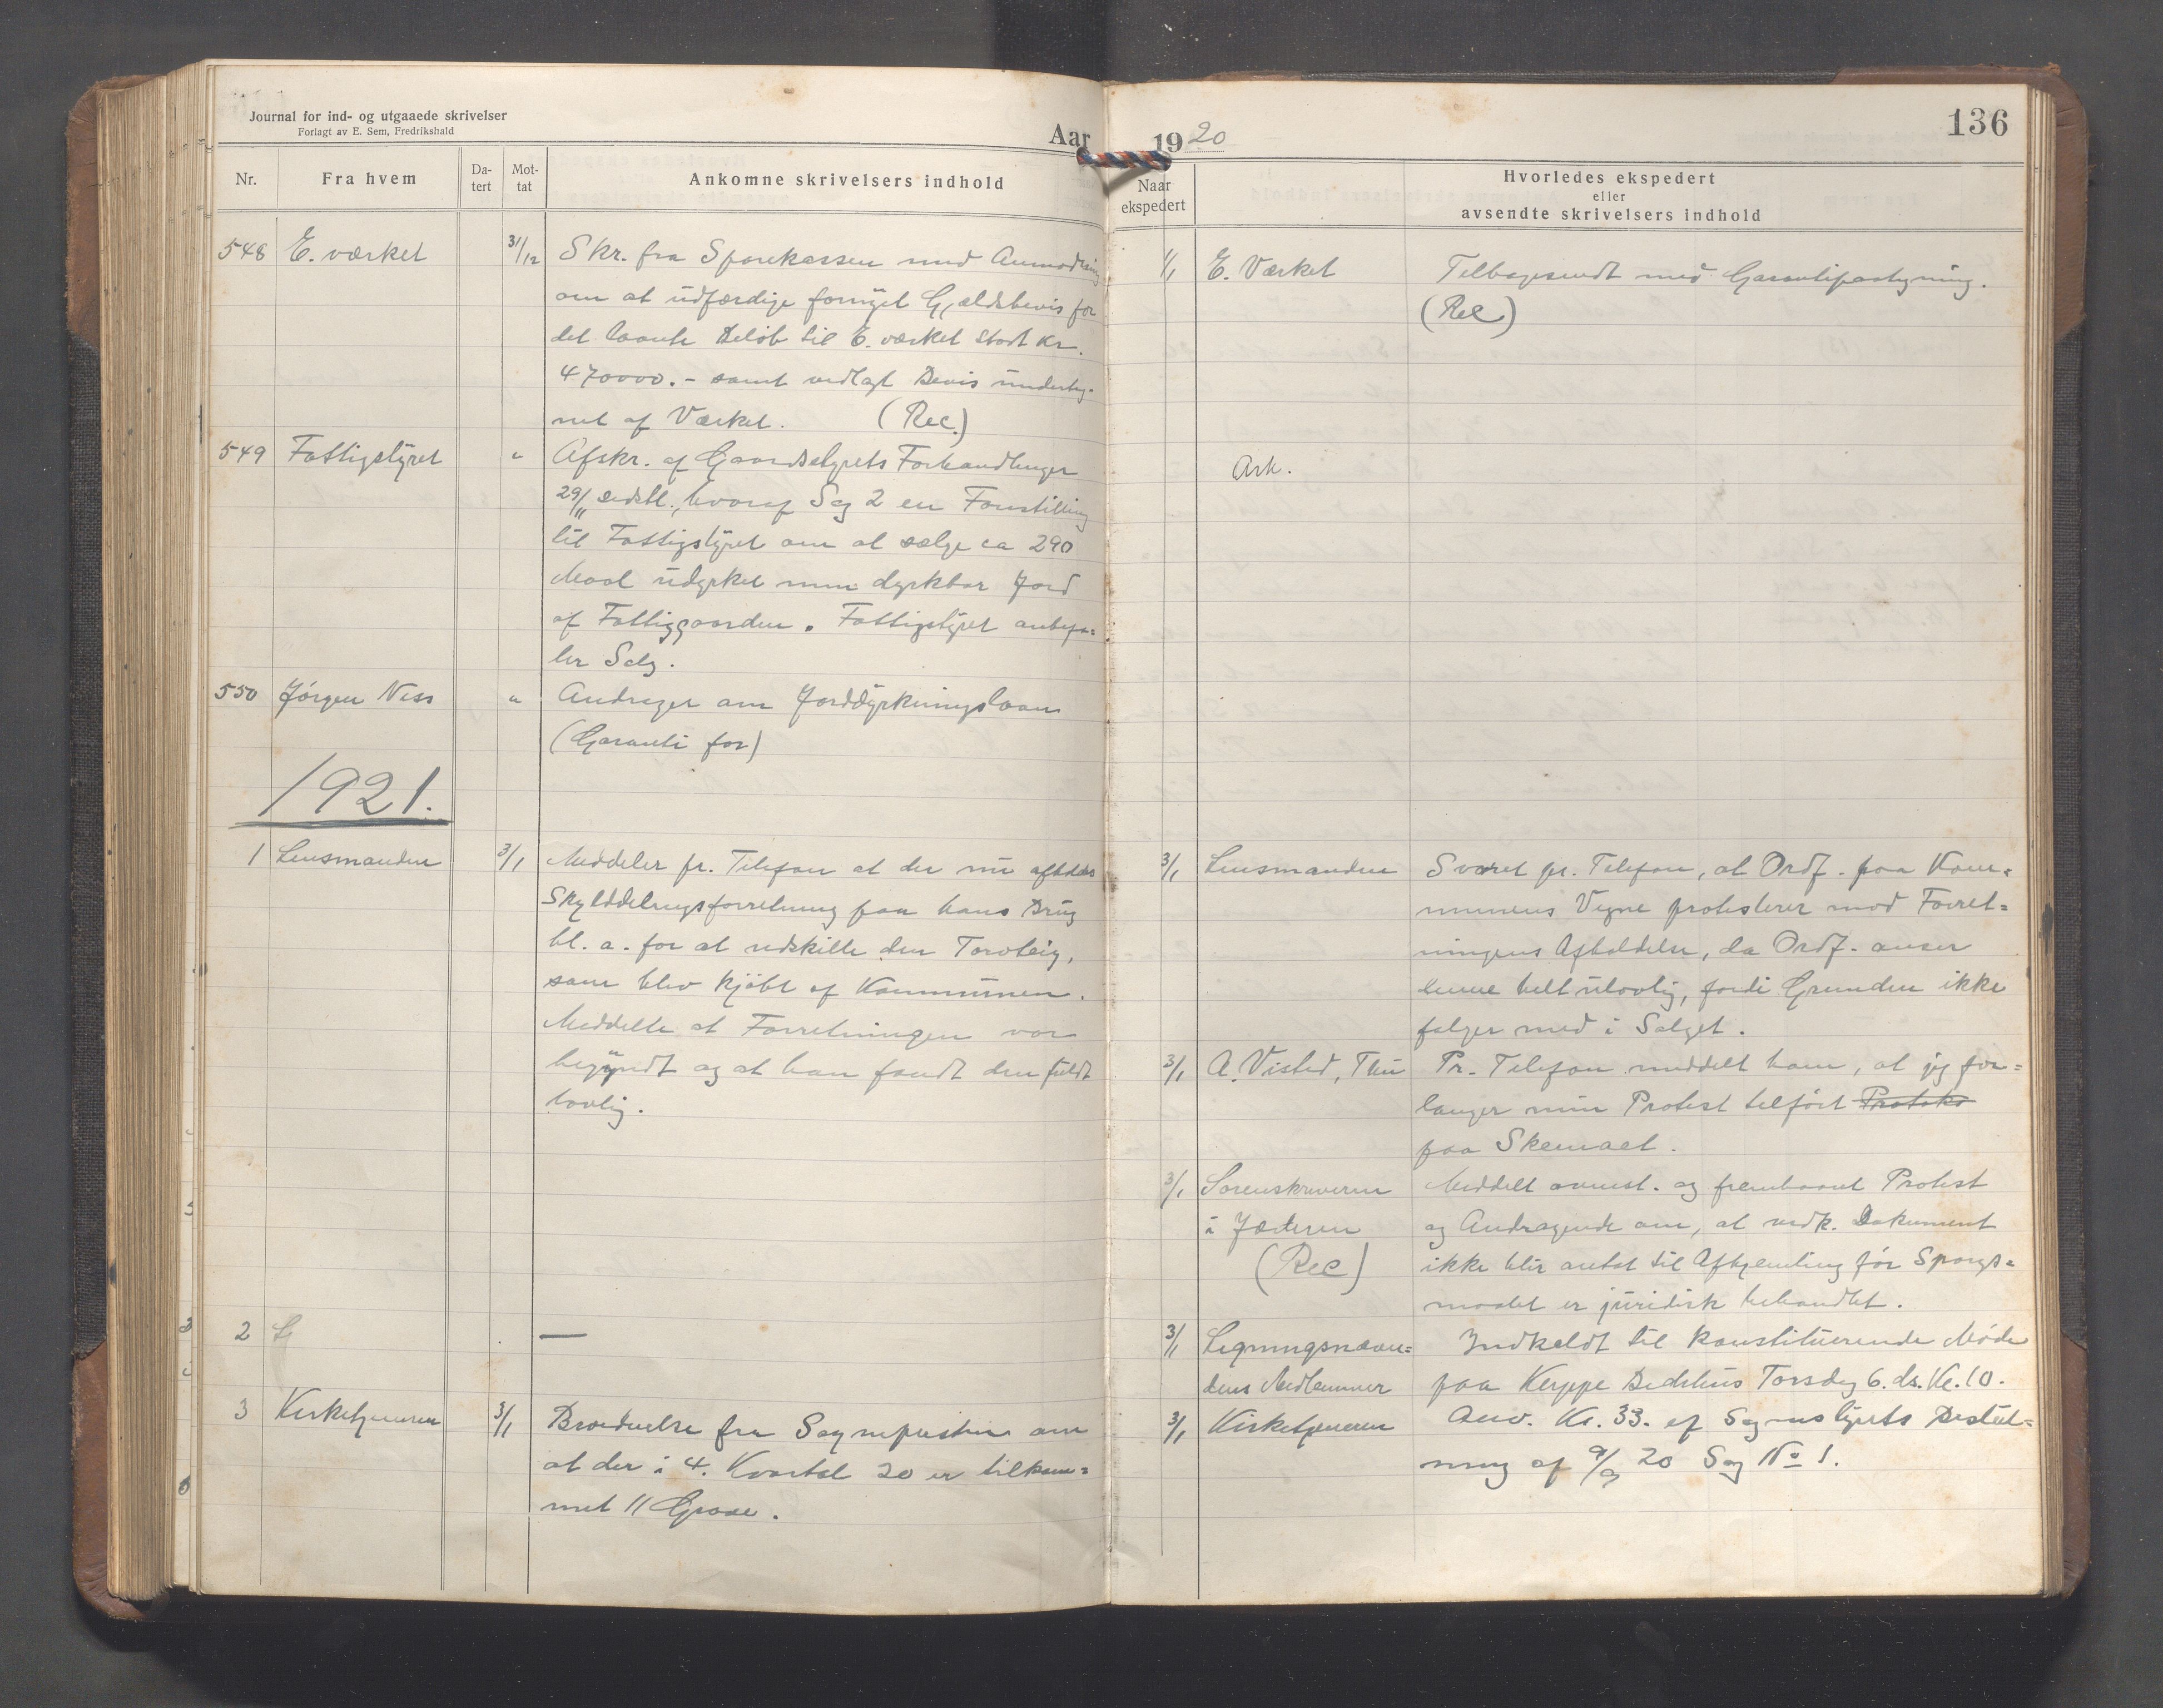 Journal for ind- og utgaaede skrivelser
Forlagt av E. Sem, Fredrikshald
Aar 1920
136
Nr.
Fra hvem
Da-
tert
Mot-
tat
Ankomne skrivelsers indhold
Naar
ekspedert
Hvorledes ekspedert
eller
avsendte skrivelsers indhold
548 E. værket 31/12 Skr. fra Sparekassen med Anmodning
om at udfærdige fornyet Gjældsbevis for
det laante Beløb til E. værket stort Kr.
470000.- samt vedlagt Bevis underteg-
net af Værket. (Rec.)
1/1 E. Værket Tilbagesendt med Garantipaategning.
(Rec)
549 Fattigstyret " Afskr. af Gaardsstyrets Forhandlinger
29/11 sidstl., hvoraf Sag 2 en Forestilling
til Fattigstyret om at sælge ca 290
Maal udyrket men dyrkbar Jord
af Fattiggaarden. Fattigstyret anbefa=
ler Salg.
Ark.
550 Jørgen Næss " Andrager om Jorddyrkningslaan
(Garanti for)
1921.
1 Lensmanden 3/1 Meddeler pr. Telefon at der nu afholdes
Skylddelingsforretning paa hans Brug
bl. a. for at udskille den Torvteig,
som blev kjøbt af Kommunen.
Meddelte at Forretningen var
begyndt og at han fandt den fuldt
lovlig.
3/1 Lensmanden Svaret pr. Telefon, at Ordf. paa Kom=
munens Vegne protesterer mod Forret=
ningens Afholdelse, da Ordf. anser
denne helt ulovlig, fordi Grunden ikke
følger med i Salget.
3/1 A. Visted, Thu Pr. Telefon meddelt ham, at jeg for=
langer min Protest tilført Protoko
paa Skemaet.
3/1 Sorenskriveren
i Jæderen
(Rec)
Meddelt ovenst. og frembaaret Protest
og Andragende om, at vedk. Dokument
ikke blir antat til Afhjemling før Spørgs=
maalet er juridisk behandlet.
2 L —
3/1 Ligningsnævn=
dens Medlemmer
Indkaldt til konstituerende Møde
paa Kleppe Bedehus Torsdag 6. ds. Kl. 10.
3 Kirketjeneren 3/1 Brændvelse fra Sognepresten om
at der i 4. Kvartal 20 er tilkom=
met 11 Grave.
3/1 Kirketjeneren Anv. Kr. 33. ef Sognestyrets Beslut=
ning af 9/9 20 Sag No 1.